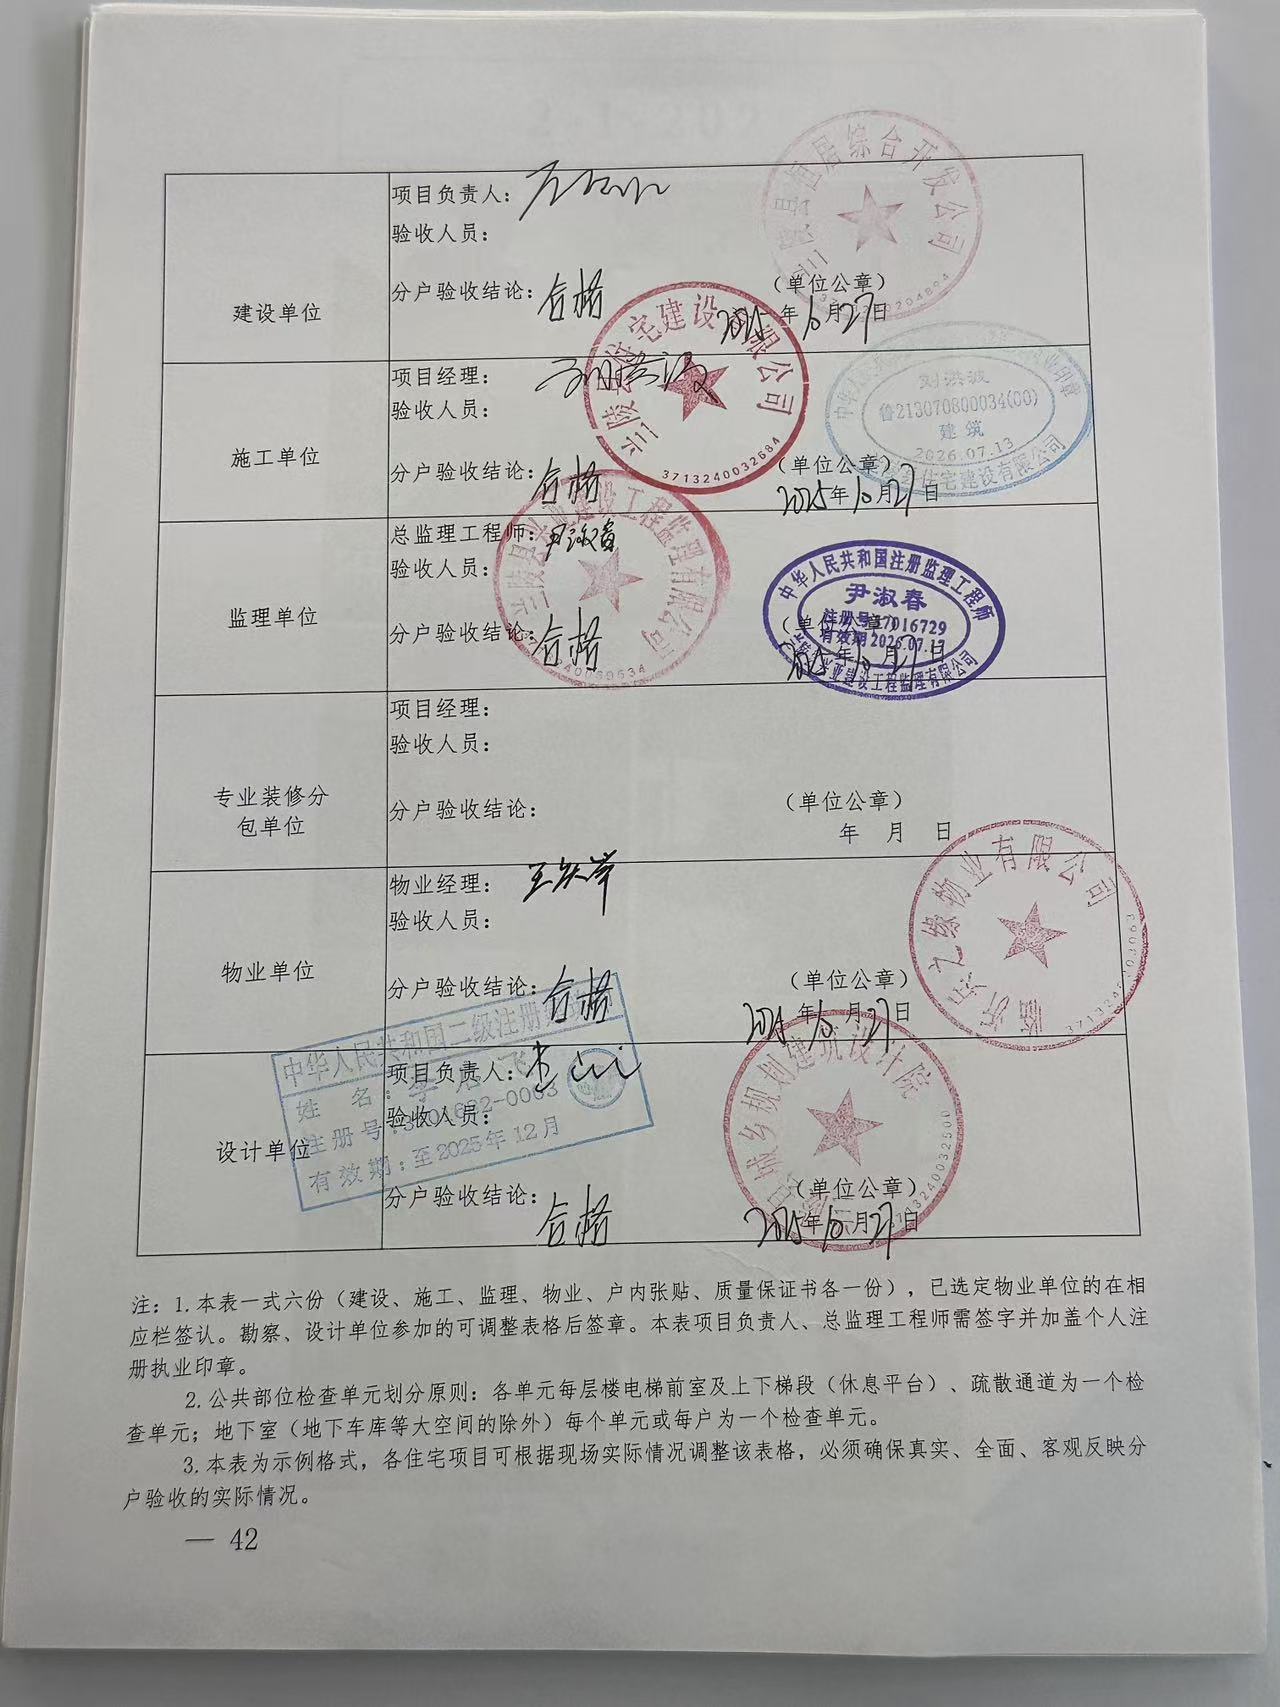 建设单位
项目负责人：
验收人员：
分户验收结论：合格
（单位公章）
2025年10月27日
综合开发公司
施工单位
项目经理：
验收人员：
分户验收结论：合格
（单位公章）
2025年10月27日
兰陵县住宅建设有限公司
3713240032684
刘洪波
鲁213070800034(00)
建筑
2026.07.13
住宅建设有限公司
监理单位
总监理工程师：尹淑春
验收人员：
分户验收结论：合格
（单位公章）
2025年10月27日
兰陵县兴亚建设工程监理有限公司
中华人民共和国注册监理工程师
尹淑春
注册号37016729
有效期2026.07.17
兴亚建设工程监理有限公司
专业装修分
包单位
项目经理：
验收人员：
分户验收结论：
（单位公章）
年 月 日
物业单位
物业经理：
验收人员：
分户验收结论：合格
（单位公章）
2025年10月27日
临沂乐之缘物业有限公司
设计单位
项目负责人：
验收人员：
分户验收结论：
合格
（单位公章）
2025年10月27日
城乡规划建筑设计院
3713240032500
中华人民共和国二级注册
姓 名：李 飞
注册号：
有效期：至2025年12月
注：1.本表一式六份（建设、施工、监理、物业、户内张贴、质量保证书各一份），已选定物业单位的在相
应栏签认。勘察、设计单位参加的可调整表格后签章。本表项目负责人、总监理工程师需签字并加盖个人注
册执业印章。
2.公共部位检查单元划分原则：各单元每层楼电梯前室及上下梯段（休息平台）、疏散通道为一个检
查单元；地下室（地下车库等大空间的除外）每个单元或每户为一个检查单元。
3.本表为示例格式，各住宅项目可根据现场实际情况调整该表格，必须确保真实、全面、客观反映分
户验收的实际情况。
— 42